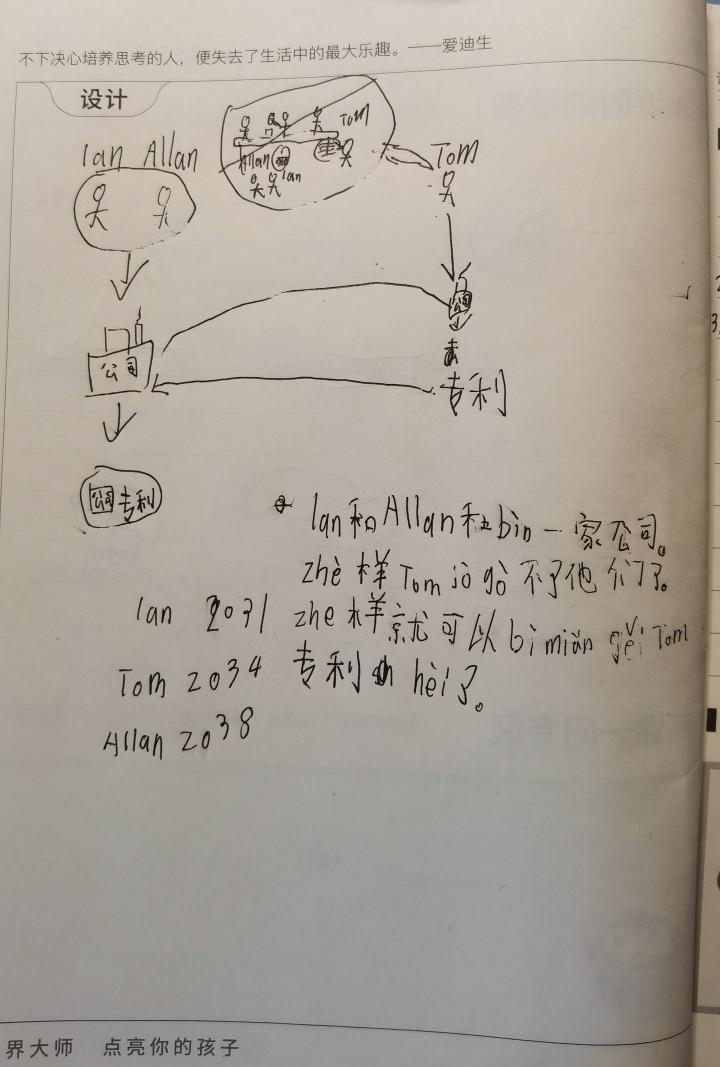 不下决心培养思考的人，便失去了生活中的最大乐趣。——爱迪生
设计
Ian Allan
Tom
Allan
Ian
Tom
公司
公司
去
专利
公司专利
Ian和Allan和bìn一家公司。
zhè样Tom jiù gò不了他们了。
zhe样就可以bì miǎn gěi Tom
专利 hèi了。
Ian 2031
Tom 2034
Allan 2038
界大师 点亮你的孩子